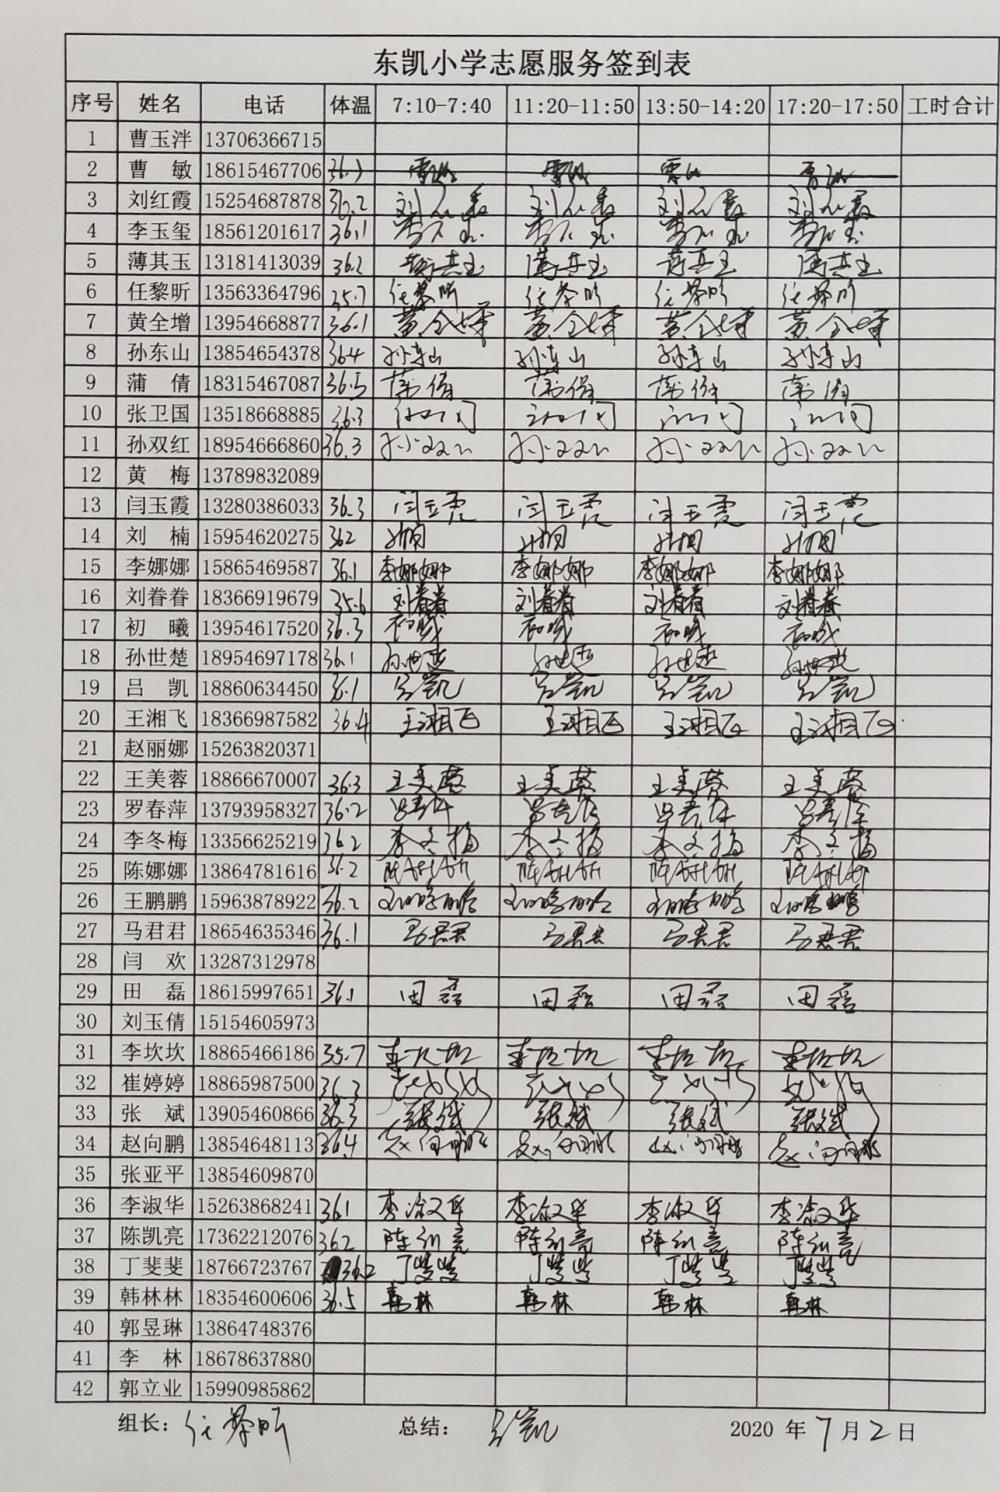 东凯小学志愿服务签到表
序号 姓名 电话 体温 7:10-7:40 11:20-11:50 13:50-14:20 17:20-17:50 工时合计
1 曹玉泮 13706366715
2 曹 敏 18615467706 36.3
3 刘红霞 15254687878 36.2 刘红霞 刘红霞 刘红霞 刘红霞
4 李玉玺 18561201617 36.1 李玉玺 李玉玺 李玉玺 李玉玺
5 薄其玉 13181413039 36.2 薄其玉 薄其玉 薄其玉 薄其玉
6 任黎昕 13563364796 35.7 任黎昕 任黎昕 任黎昕 任黎昕
7 黄全增 13954668877 36.1 黄全增 黄全增 黄全增 黄全增
8 孙东山 13854654378 36.4 孙东山 孙东山 孙东山 孙东山
9 蒲 倩 18315467087 36.5 蒲倩 蒲倩 蒲倩 蒲倩
10 张卫国 13518668885 36.3
11 孙双红 18954666860 36.3 孙双红 孙双红 孙双红 孙双红
12 黄 梅 13789832089
13 闫玉霞 13280386033 36.3 闫玉霞 闫玉霞 闫玉霞 闫玉霞
14 刘 楠 15954620275 362 刘楠 刘楠 刘楠 刘楠
15 李娜娜 15865469587 36.1 李娜娜 李娜娜 李娜娜 李娜娜
16 刘眷眷 18366919679 35.6 刘眷眷 刘眷眷 刘眷眷 刘眷眷
17 初 曦 13954617520 36.3 初曦 初曦 初曦 初曦
18 孙世楚 18954697178 36.1 孙世楚 孙世楚 孙世楚 孙世楚
19 吕 凯 18860634450 36.1 吕凯 吕凯 吕凯 吕凯
20 王湘飞 18366987582 36.4 王湘飞 王湘飞 王湘飞 王湘飞
21 赵丽娜 15263820371
22 王美蓉 18866670007 36.3 王美蓉 王美蓉 王美蓉 王美蓉
23 罗春萍 13793958327 36.2 罗春萍 罗春萍 罗春萍 罗春萍
24 李冬梅 13356625219 36.2 李冬梅 李冬梅 李冬梅 李冬梅
25 陈娜娜 13864781616 36.2 陈娜娜 陈娜娜 陈娜娜 陈娜娜
26 王鹏鹏 15963878922 36.2 王鹏鹏 王鹏鹏 王鹏鹏 王鹏鹏
27 马君君 18654635346 36.1 马君君 马君君 马君君 马君君
28 闫 欢 13287312978
29 田 磊 18615997651 36.1 田磊 田磊 田磊 田磊
30 刘玉倩 15154605973
31 李坎坎 18865466186 35.7 李坎坎 李坎坎 李坎坎 李坎坎
32 崔婷婷 18865987500 36.3
33 张 斌 13905460866 36.3 张斌 张斌 张斌 张斌
34 赵向鹏 13854648113 36.4 赵向鹏 赵向鹏 赵向鹏 赵向鹏
35 张亚平 13854609870
36 李淑华 15263868241 361 李淑华 李淑华 李淑华 李淑华
37 陈凯亮 17362212076 362 陈凯亮 陈凯亮 陈凯亮 陈凯亮
38 丁斐斐 18766723767 36.2 丁斐斐 丁斐斐 丁斐斐 丁斐斐
39 韩林林 18354600606 36.5 韩林 韩林 韩林 韩林
40 郭昱琳 13864748376
41 李 林 18678637880
42 郭立业 15990985862
组长: 任黎昕 总结: 吕凯 2020 年 7 月 2 日